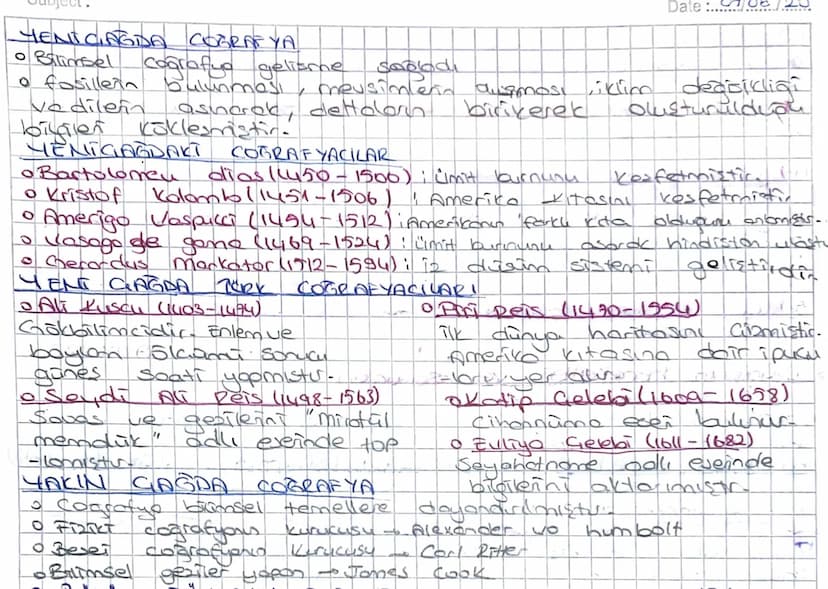 Subject:
Date:
YENİÇAĞDA COĞRAFYA
o Bilimsel coğrafya gelişme sağladı
o fosillerin bulunması, mevsimlerin oluşması, iklim değişikliği
vadilerin aşınarak, deltaların birikerek oluşturulduğu
bilgileri kökleşmiştir.
YENİÇAĞDAKİ COĞRAFYACILAR
o Bartolomeu dias (1450-1500): ümit burnunu keşfetmiştir.
o Kristof Kolomb (1451-1506): Amerika kıtasını keşfetmiştir
o Amerigo Vaspucci (1454-1512): Amerikanın farklı kıta olduğunu anlamıştır.
o Vasogo de gama (1469-1524): ümit burnunu aşarak hindistan
o Gherardus Markator (1512-1594): iz düşüm sistemi
YENİ ÇAĞDA TÜRK COĞRAFYACILARI
o Ali Kuşçu (1403-1474)
Gökbilimcidir. Enlem ve
boylam ölçümü sonucu
güneş saati yapmıştır.
o Seydi Ali Reis (1498-1563)
Savaş ve gezilerini "miratül
memalük" adlı eserinde top
-lamıştır.
o Piri Reis (1490-1554)
ilk dünya haritasını çizmiştir.
Amerika kıtasına dair ipucu
-ları yer alır.
o Katip Çelebi (1609-1658)
Cihannüma eseri bulunur.
o Evliya Çelebi (1611-1682)
Seyahatname adlı eserinde
bilgilerini aktarmıştır.
YAKIN ÇAĞDA COĞRAFYA
o Coğrafya bilimsel temellere dayandırılmıştır.
o Fiziki coğrafyanın kurucusu → Alexander vo humbolt
o Beşeri coğrafyanın kurucusu → Carl Ritter
o Bilimsel geziler yapan → James Cook